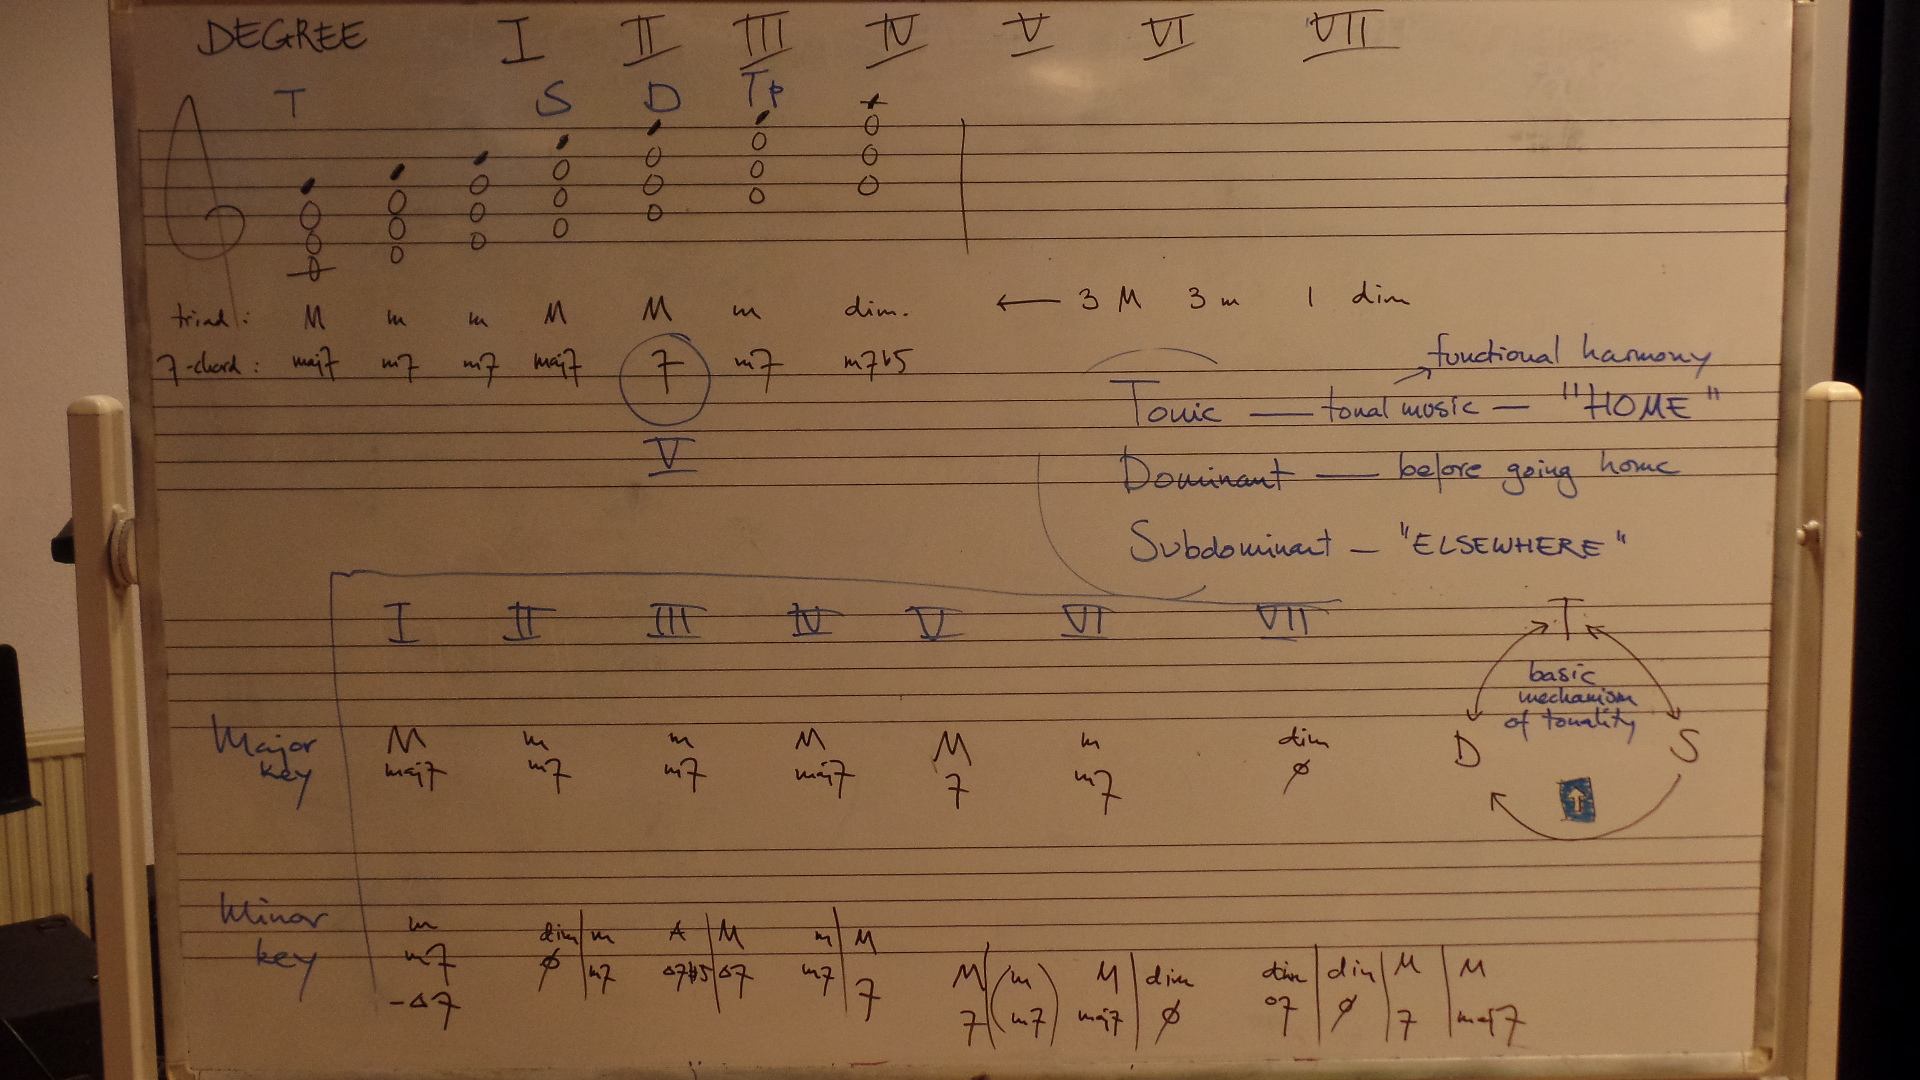 DEGREE I II III IV V VI VII
T S D Tp
triad: M m m M M m dim. ← 3 M 3 m 1 dim
7-chord: maj7 m7 m7 maj7 7 m7 m7b5
V
functional harmony
Tonic — tonal music — "HOME"
Dominant — before going home
Subdominant — "ELSEWHERE"
I II III IV V VI VII
T
basic
mechanism
of tonality
D S
Major key
M m m M M m dim
maj7 m7 m7 maj7 7 m7 ø
Minor key
m dim | m A | M m | M M | (m) M | dim dim | dim | M | M
m7 ø | m7 Δ7#5 | Δ7 m7 | 7 7 | (m7) maj7 | ø o7 | ø | 7 | maj7
-Δ7